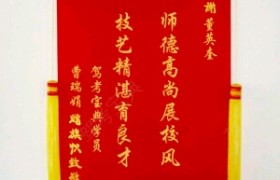 谢董英奎
师德高尚展校风
技艺精湛育良才
驾考宝典学员
曹瑞娟赠旗以致敬